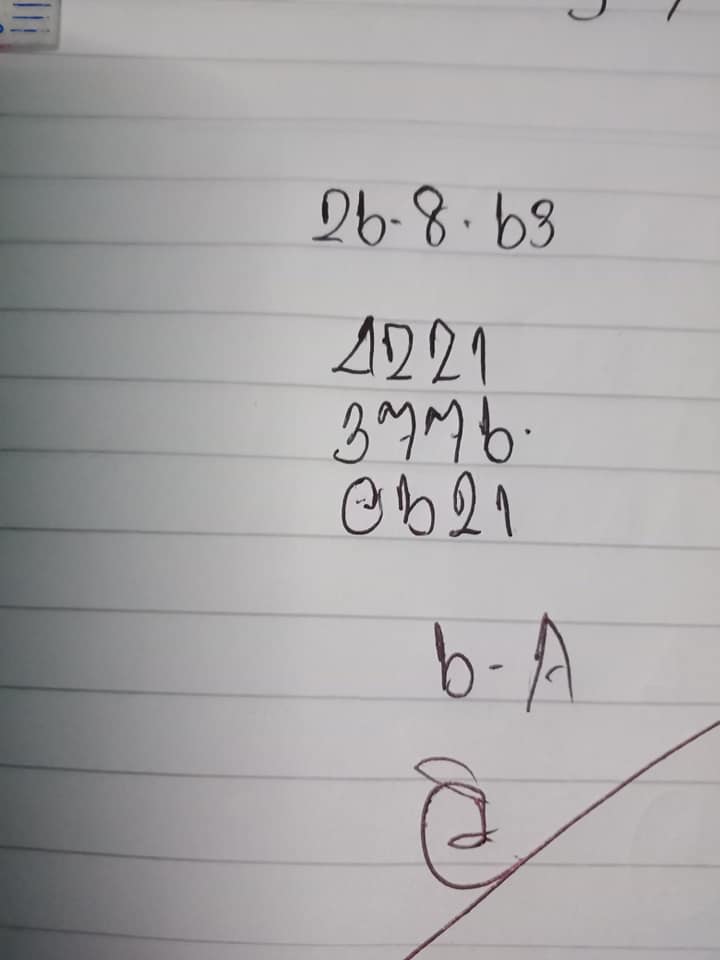 26-8.63
4221
3776.
0621
6-A